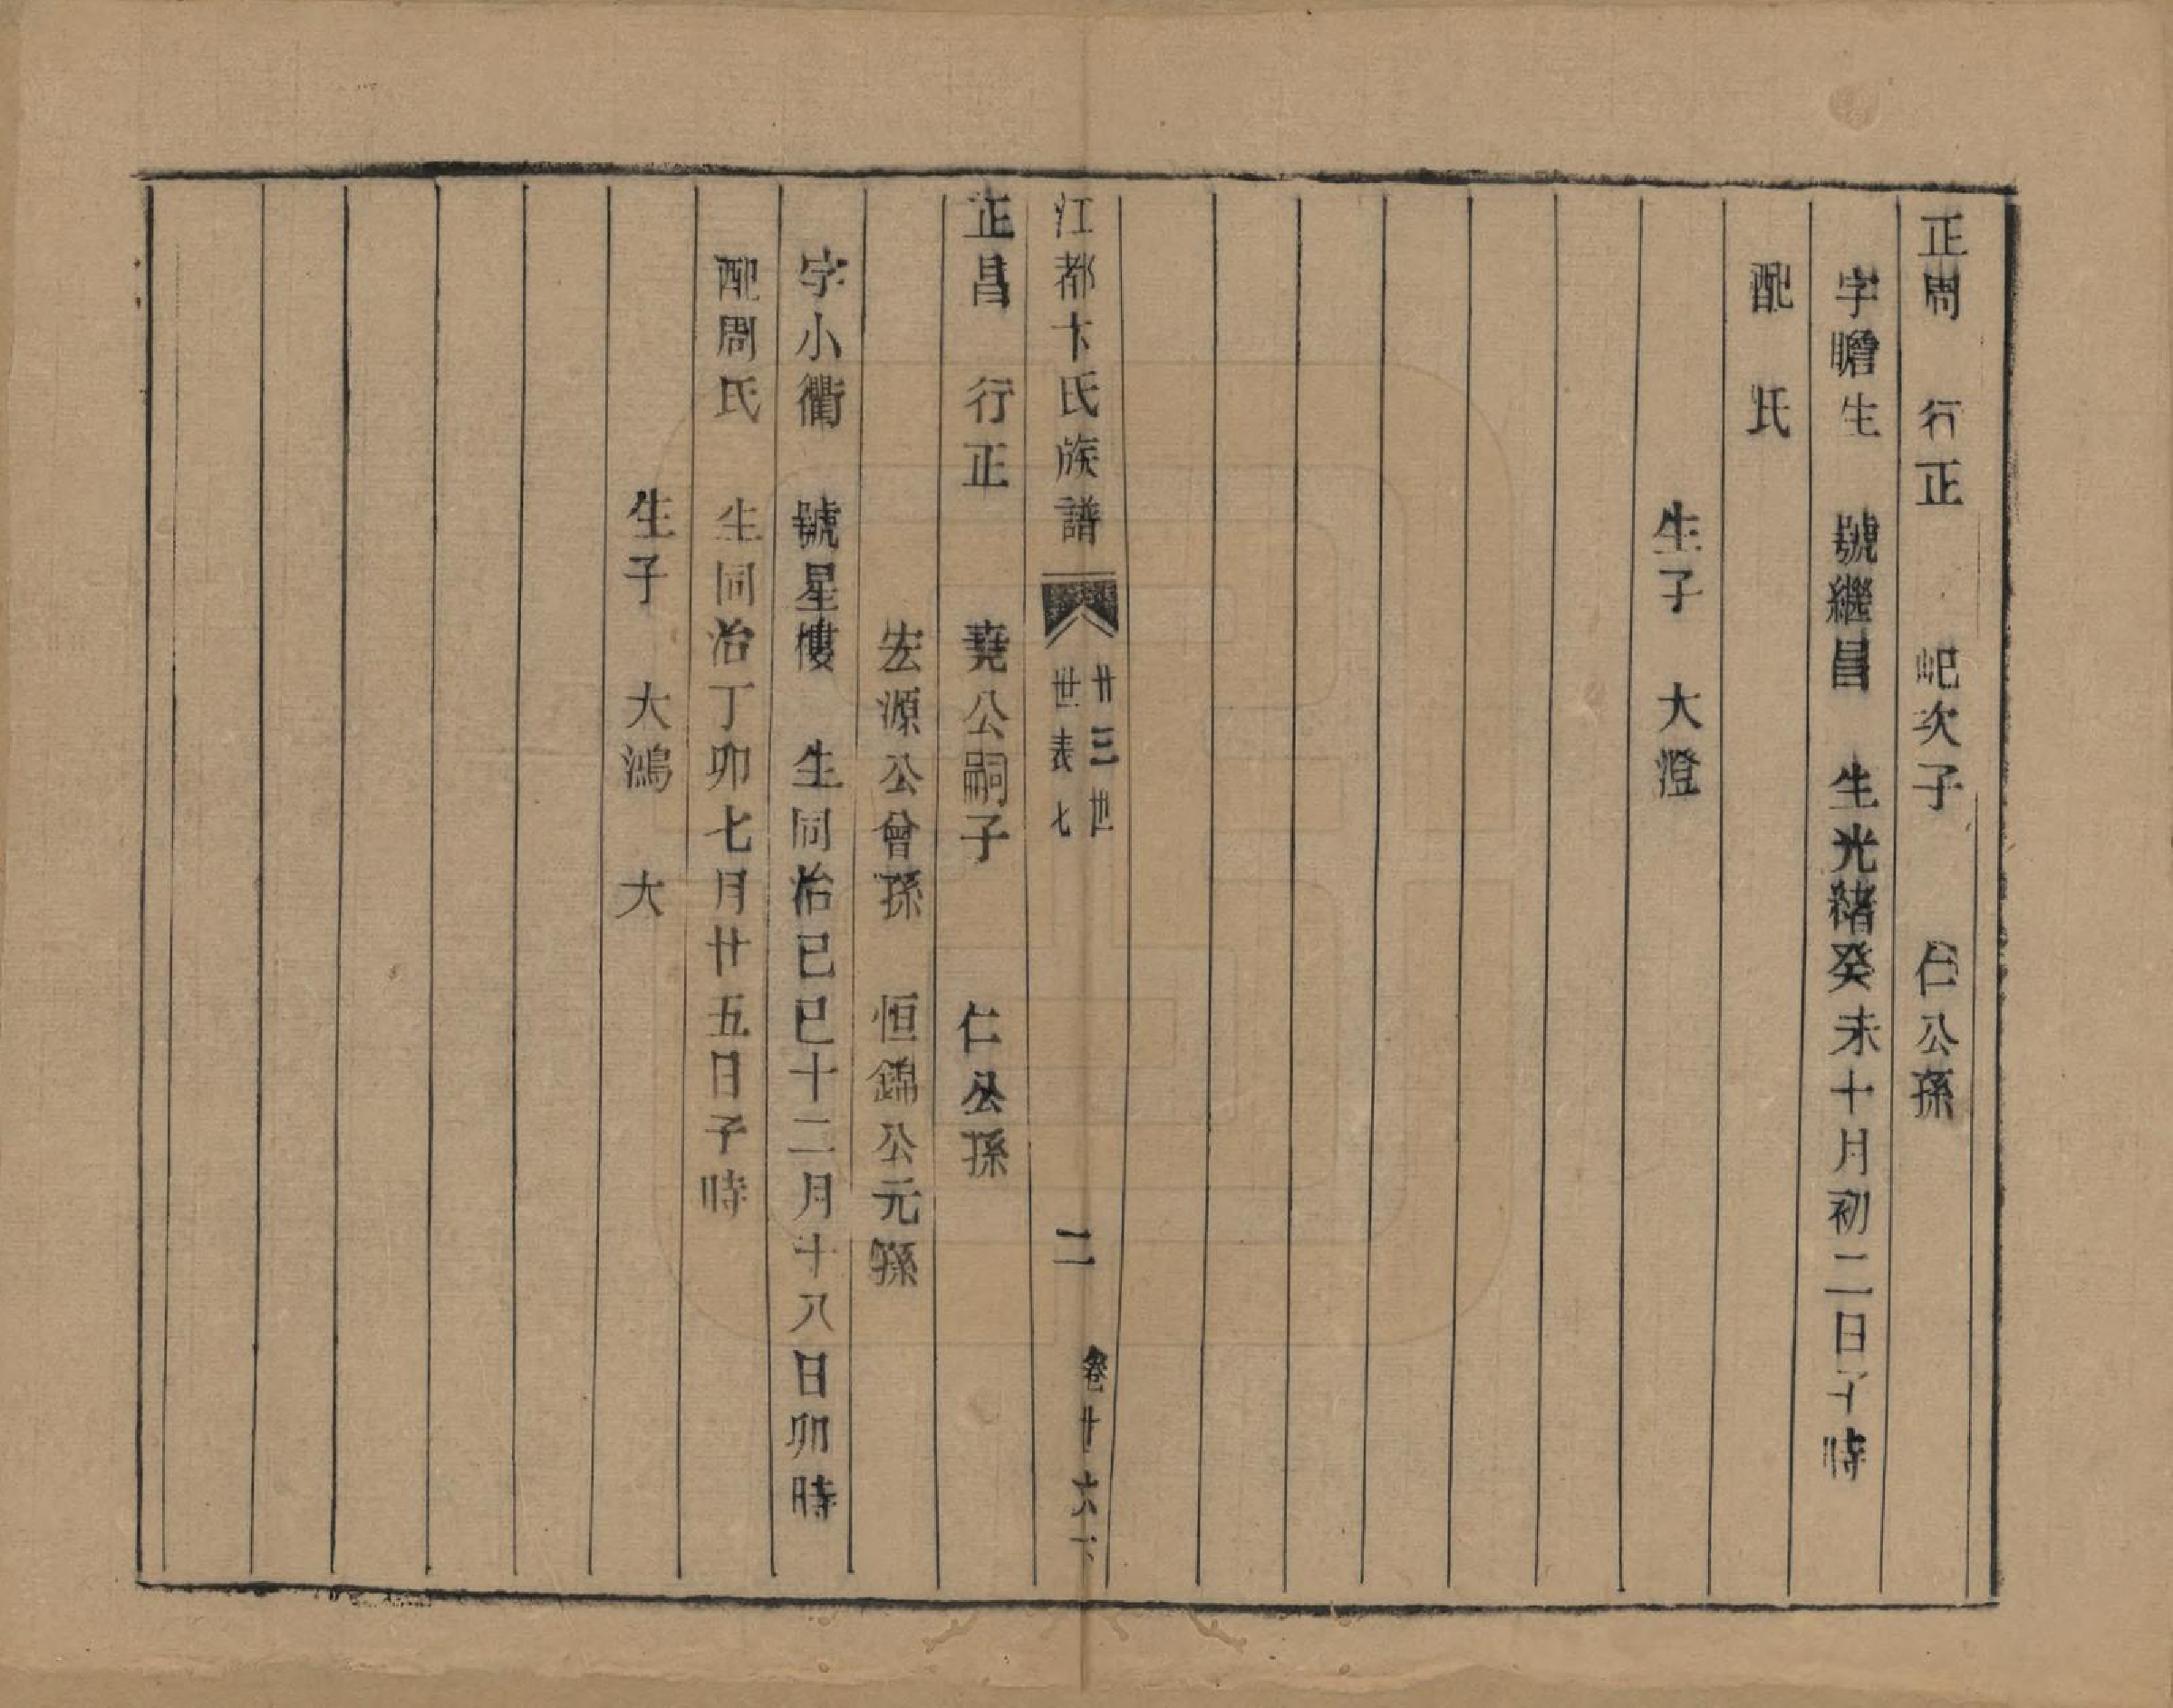 正周　行正　　屺次子　　仁公孫
字瞻生　號繼昌　生光緒癸未十月初二日子時
配　氏
生子　大澄
江都卞氏族譜　廿三世　世表七　二　卷廿六下
正昌　行正　　堯公嗣子　　仁公孫
宏源公曾孫　恒錦公元孫
字小衢　號星樓　生同治己巳十二月十八日卯時
配周氏　生同治丁卯七月廿五日子時
生子　大鴻　大